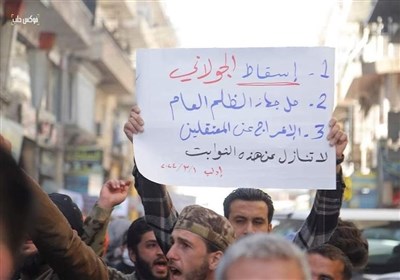 فوكس حلب
1- إسقاط الجولاني
2- حل جهاز الظلم العام
3- الإفراج عن المعتقلين
لا تنازل عن هذه الثوابت
إدلب